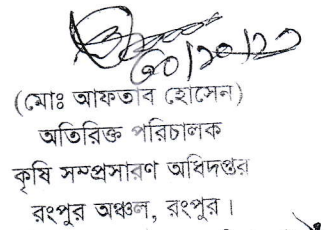 ৩০/১০/২৩
(মোঃ আফতাব হোসেন)
অতিরিক্ত পরিচালক
কৃষি সম্প্রসারণ অধিদপ্তর
রংপুর অঞ্চল, রংপুর।